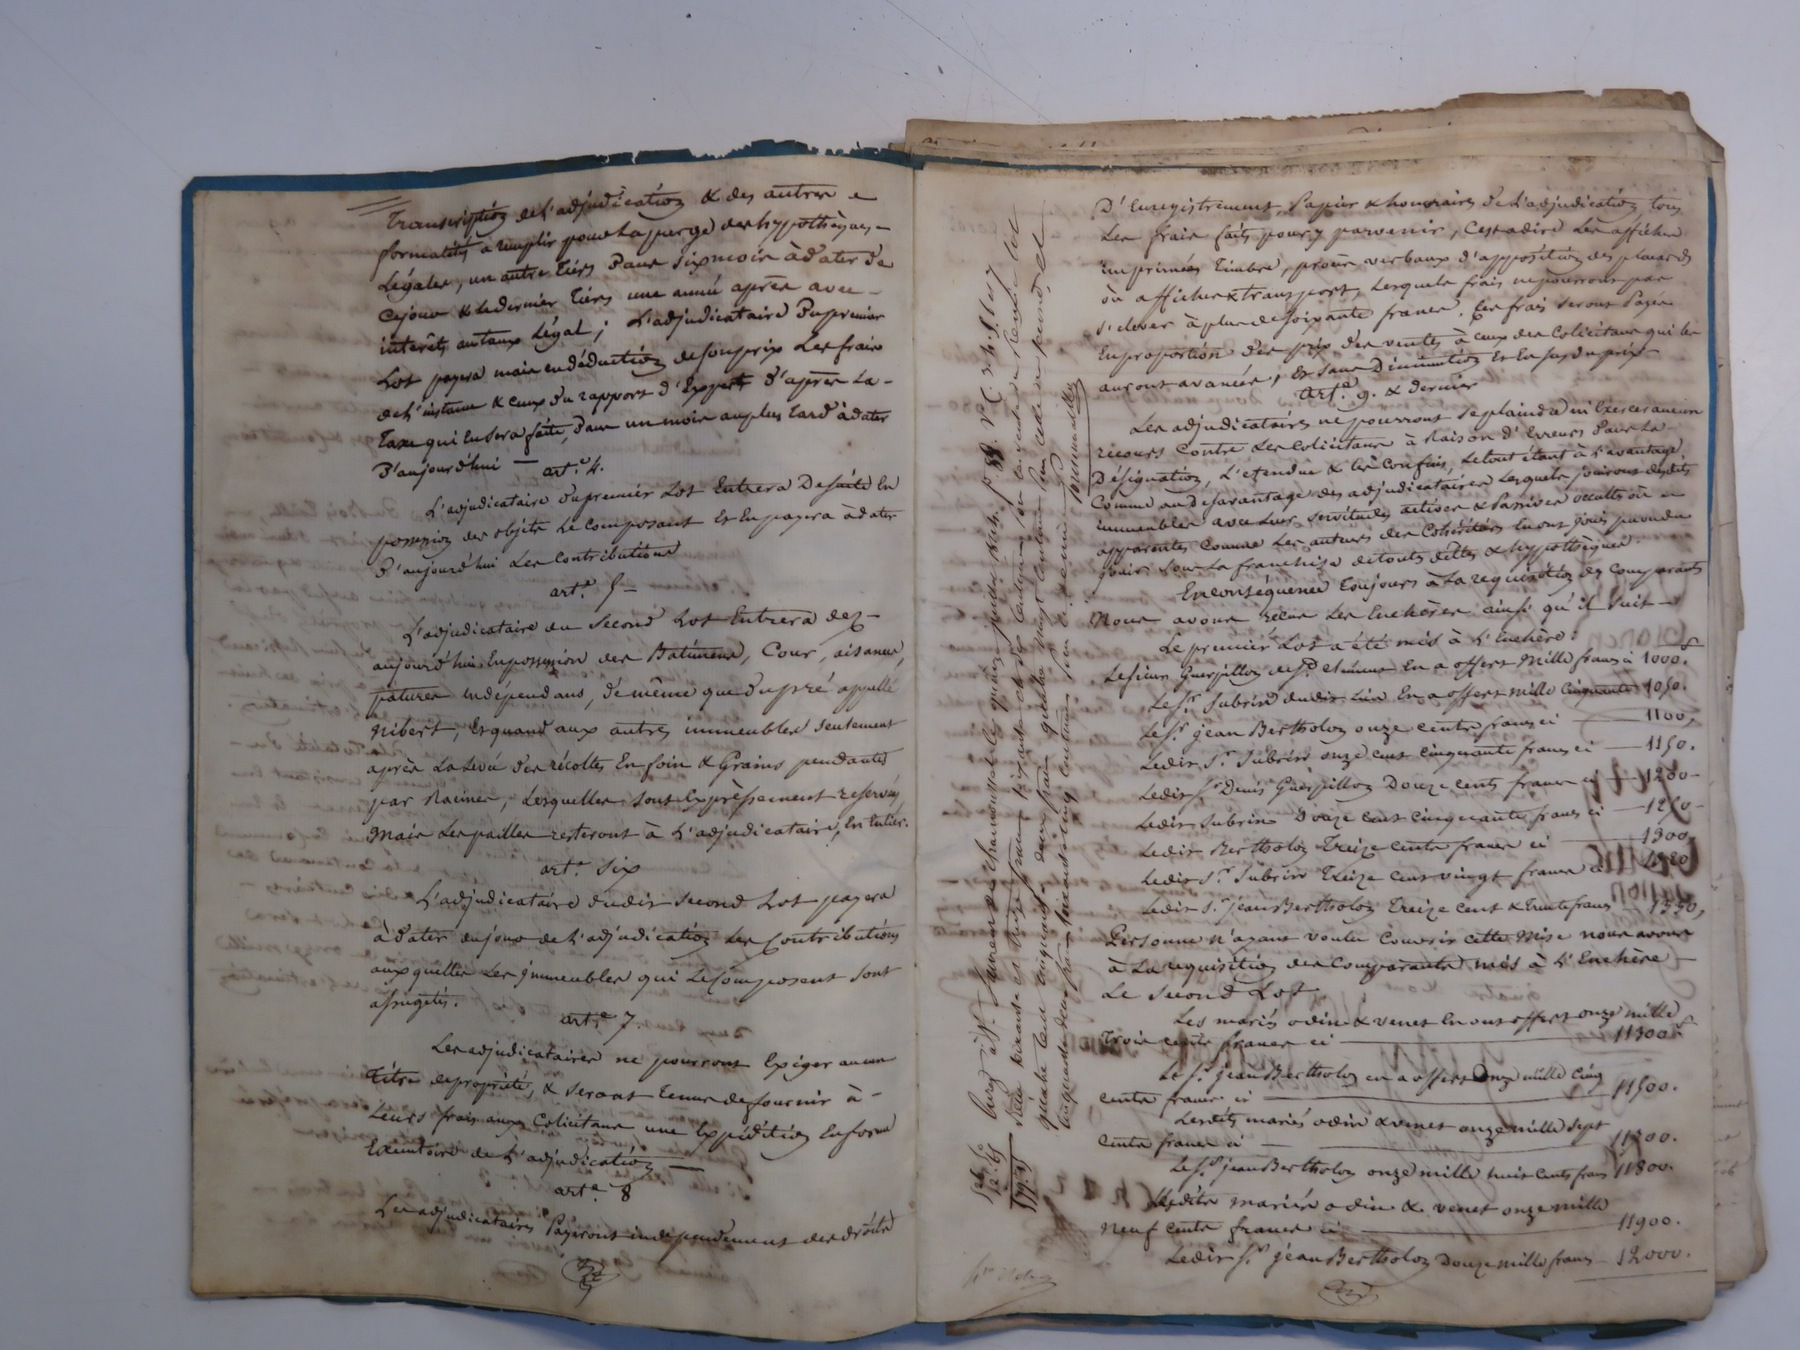 Transcription de l'adjudication & des autres
formalités à remplir pour la purge des hypothèques
légales, un autre tiers dans six mois à dater de
ce jour & le dernier tiers une année après avec
intérêts au taux légal; L'adjudicataire du premier
Lot payera mais en déduction de son prix Les frais
de L'instance & ceux du rapport d'Expert d'après La
Taxe qui en sera faite, Dans un mois au plus tard à dater
D'aujourd'hui — art.e 4.
L'adjudicataire du premier Lot Entrera De suite En
possession des objets Le Composant Et En payera à dater
D'aujourd'hui Les Contributions
art.e 5 —
L'adjudicataire du Second Lot Entrera dez
aujourd'hui En possession des Batimens, Cour, aisances,
patures independans, de même que du pré appellé
Gibert, Et quand aux autres immeubles seulement
après La Levée des récoltes En foin & Grains pendantes
par Racines, Lesquelles sont Expressement reservées
Mais Les pailles resteront à L'adjudicataire, En Entier.
art.e Six
L'adjudicataire dudit second Lot payera
à dater du jour de L'adjudication Les Contributions
auxquelles Les immeubles qui Le Composent sont
assugetis.
art.e 7.
Les adjudicataires ne pourront Exiger aucun
titre de propriété, & seront tenus de fournir à
Leurs frais aux Colicitans une Expédition En forme
Exécutoire de L'adjudication —
art.e 8
Les adjudicataires Payeront independemment des droits
D'Enregistrement, Papier & honoraires de L'adjudication, tous
Les frais faits pour y parvenir, C'est a dire Les affiches
imprimées Timbre, procès verbaux d'apposition des placards
ou affiches & transport, Lesquels frais ne pourront pas
s'elever à plus de soixante francs. Ces frais seront Payés
En proportion des prix des ventes à ceux des Colicitans qui les
auront avancés, & sans Diminution Et En sus du prix
Art.e 9. & dernier
Les adjudicataires ne pourront se plaindre ni Exercer aucun
recours Contre Les Colicitans à Raison d'Erreurs Dans La
Désignation, L'etendue & Les Confins, Le tout étant à L'avantage,
Comme au Desavantage des adjudicataires Lesquels jouiront desdits
immeubles avec Leurs servitudes actives & Passives occultes ou
apparentes Comme Les auteurs des Cohéritiers En ont joui pu ou du
jouir sous La franchise de toutes dettes & hypothèques.
En conséquence Toujours à La requisition des Comparants
Nous avons reçu Les Enchères ainsi qu'il suit —
Le premier Lot a été mis à L'Enchère:
Le sieur Guerpillon de St. En a offert Mille francs ci 1000.f
Le S.r Subrin dudit Lieu En a offert mille Cinquante 1050.
Le S.r jean Bertholon onze cents francs ci — 1100,
Ledit S.r Subrin onze cent cinquante francs ci — 1150.
Ledit S.r Denis Guerpillon Douze cents francs ci — 1200 —
Ledit Subrin Douze cent cinquante francs ci — 1250 —
Ledit Bertholon Treize cents francs ci — 1300
Ledit S.r Subrin Treize cent vingt francs ci 1320
Ledit S.r jean Bertholon Treize cent & Trente francs — 1330,
Personne n'ayant voulu Couvrir cette Mise nous avons
à La requisition des Comparants mis à L'Enchère —
Le Second Lot.
Les mariés odin & venet En ont offert onze mille
Trois cents francs ci — 11300f
Le S.r jean Bertholon en a offert onze mille cinq
cents francs ci — 11500.
Lesdits mariés odin & venet onze mille sept
cents francs ci — 11700.
Le S.r jean Bertholon onze mille huit cents francs 11800.
Lesdits mariés odin & venet onze mille
neuf cents francs ci — 11900.
Ledit S.r jean Bertholon Douze mille francs — 12000.